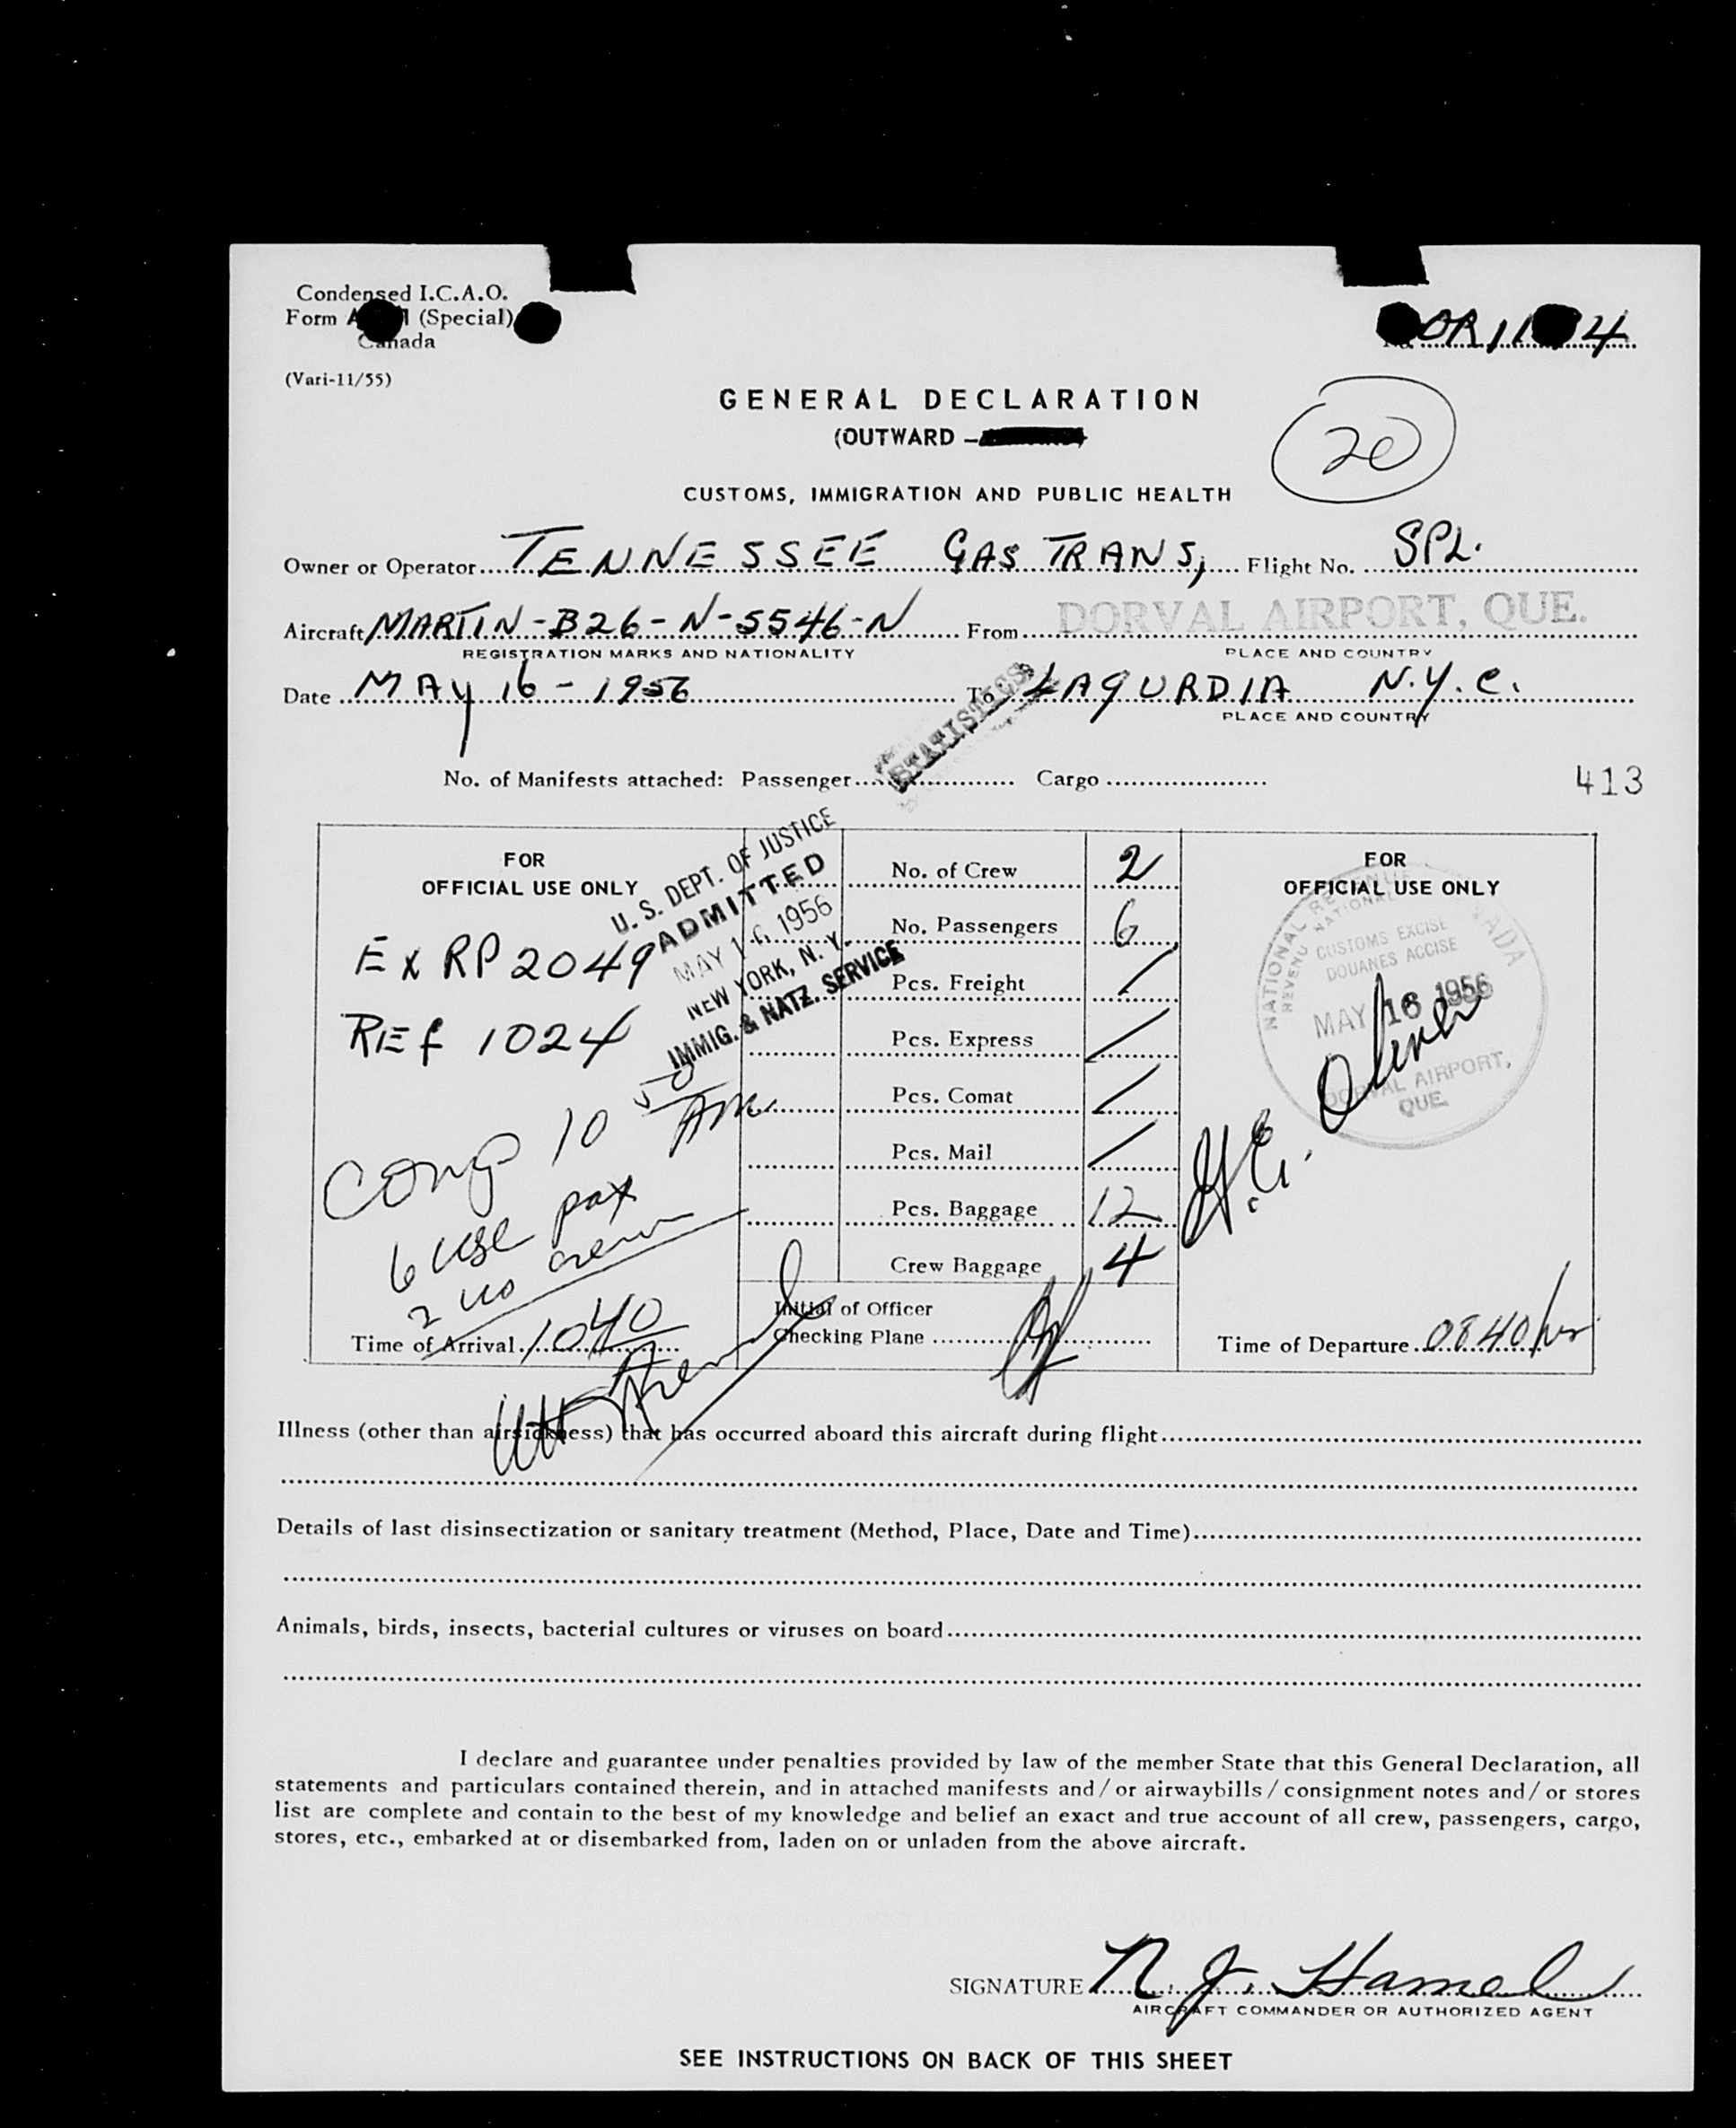 Condensed I.C.A.O.
Form (Special)
Canada
(Vari-11/55)
GENERAL DECLARATION
(OUTWARD –
20
CUSTOMS, IMMIGRATION AND PUBLIC HEALTH
Owner or Operator TENNESSEE GAS TRANS, Flight No. SPL.
Aircraft MARTIN-B26-N-5546-N From DORVAL AIRPORT, QUE.
REGISTRATION MARKS AND NATIONALITY PLACE AND COUNTRY
Date MAY 16-1956 To LAGURDIA N.Y.C.
PLACE AND COUNTRY
STATISTICS
No. of Manifests attached: Passenger Cargo
413
FOR
OFFICIAL USE ONLY
U. S. DEPT. OF JUSTICE
ADMITTED
MAY 16 1956
NEW YORK, N. Y.
IMMIG. & NATZ. SERVICE
EX RP 2049
REf 1024
Comp 10 50 AM
6 use pax
2 uo crew
Time of Arrival 1040
No. of Crew 2
No. Passengers 6
Pcs. Freight /
Pcs. Express /
Pcs. Comat /
Pcs. Mail /
Pcs. Baggage 12
Crew Baggage 4
Initial of Officer
Checking Plane
FOR
OFFICIAL USE ONLY
NATIONAL REVENUE CANADA
REVENU NATIONAL
CUSTOMS EXCISE
DOUANES ACCISE
MAY 16 1956
DORVAL AIRPORT,
QUE.
Time of Departure 0840 hrs
Illness (other than airsickness) that has occurred aboard this aircraft during flight
Details of last disinsectization or sanitary treatment (Method, Place, Date and Time)
Animals, birds, insects, bacterial cultures or viruses on board
I declare and guarantee under penalties provided by law of the member State that this General Declaration, all
statements and particulars contained therein, and in attached manifests and/or airwaybills/consignment notes and/or stores
list are complete and contain to the best of my knowledge and belief an exact and true account of all crew, passengers, cargo,
stores, etc., embarked at or disembarked from, laden on or unladen from the above aircraft.
SIGNATURE N. J. Hamel
AIRCRAFT COMMANDER OR AUTHORIZED AGENT
SEE INSTRUCTIONS ON BACK OF THIS SHEET